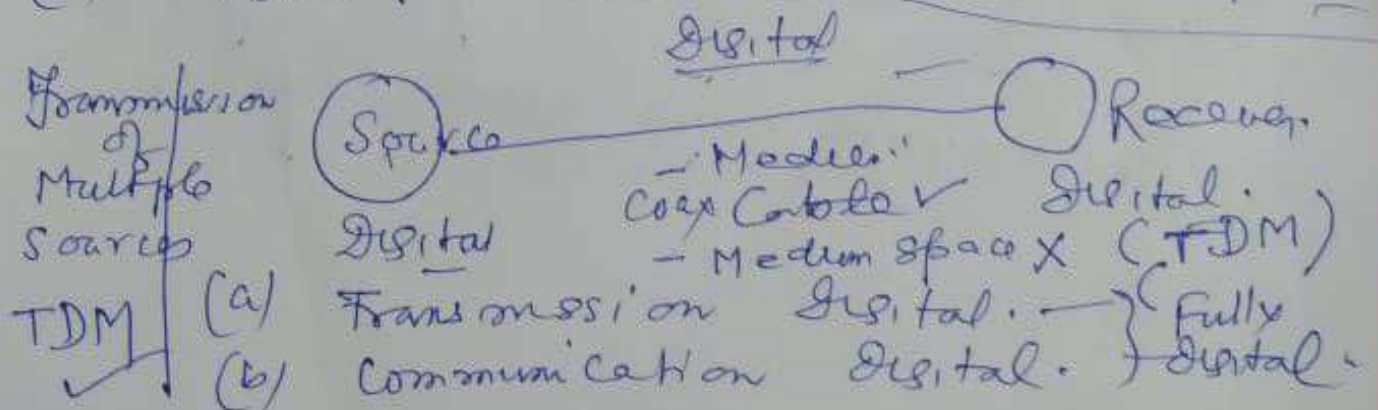 Digital
Transmission
of
Multiple
Sources
TDM
Source
Receiver.
- Medium
Coax Cable ✓ Digital.
Digital
- Medium space X (TDM)
(a) Transmission Digital. — } (Fully
(b) Communication Digital. } Digital.